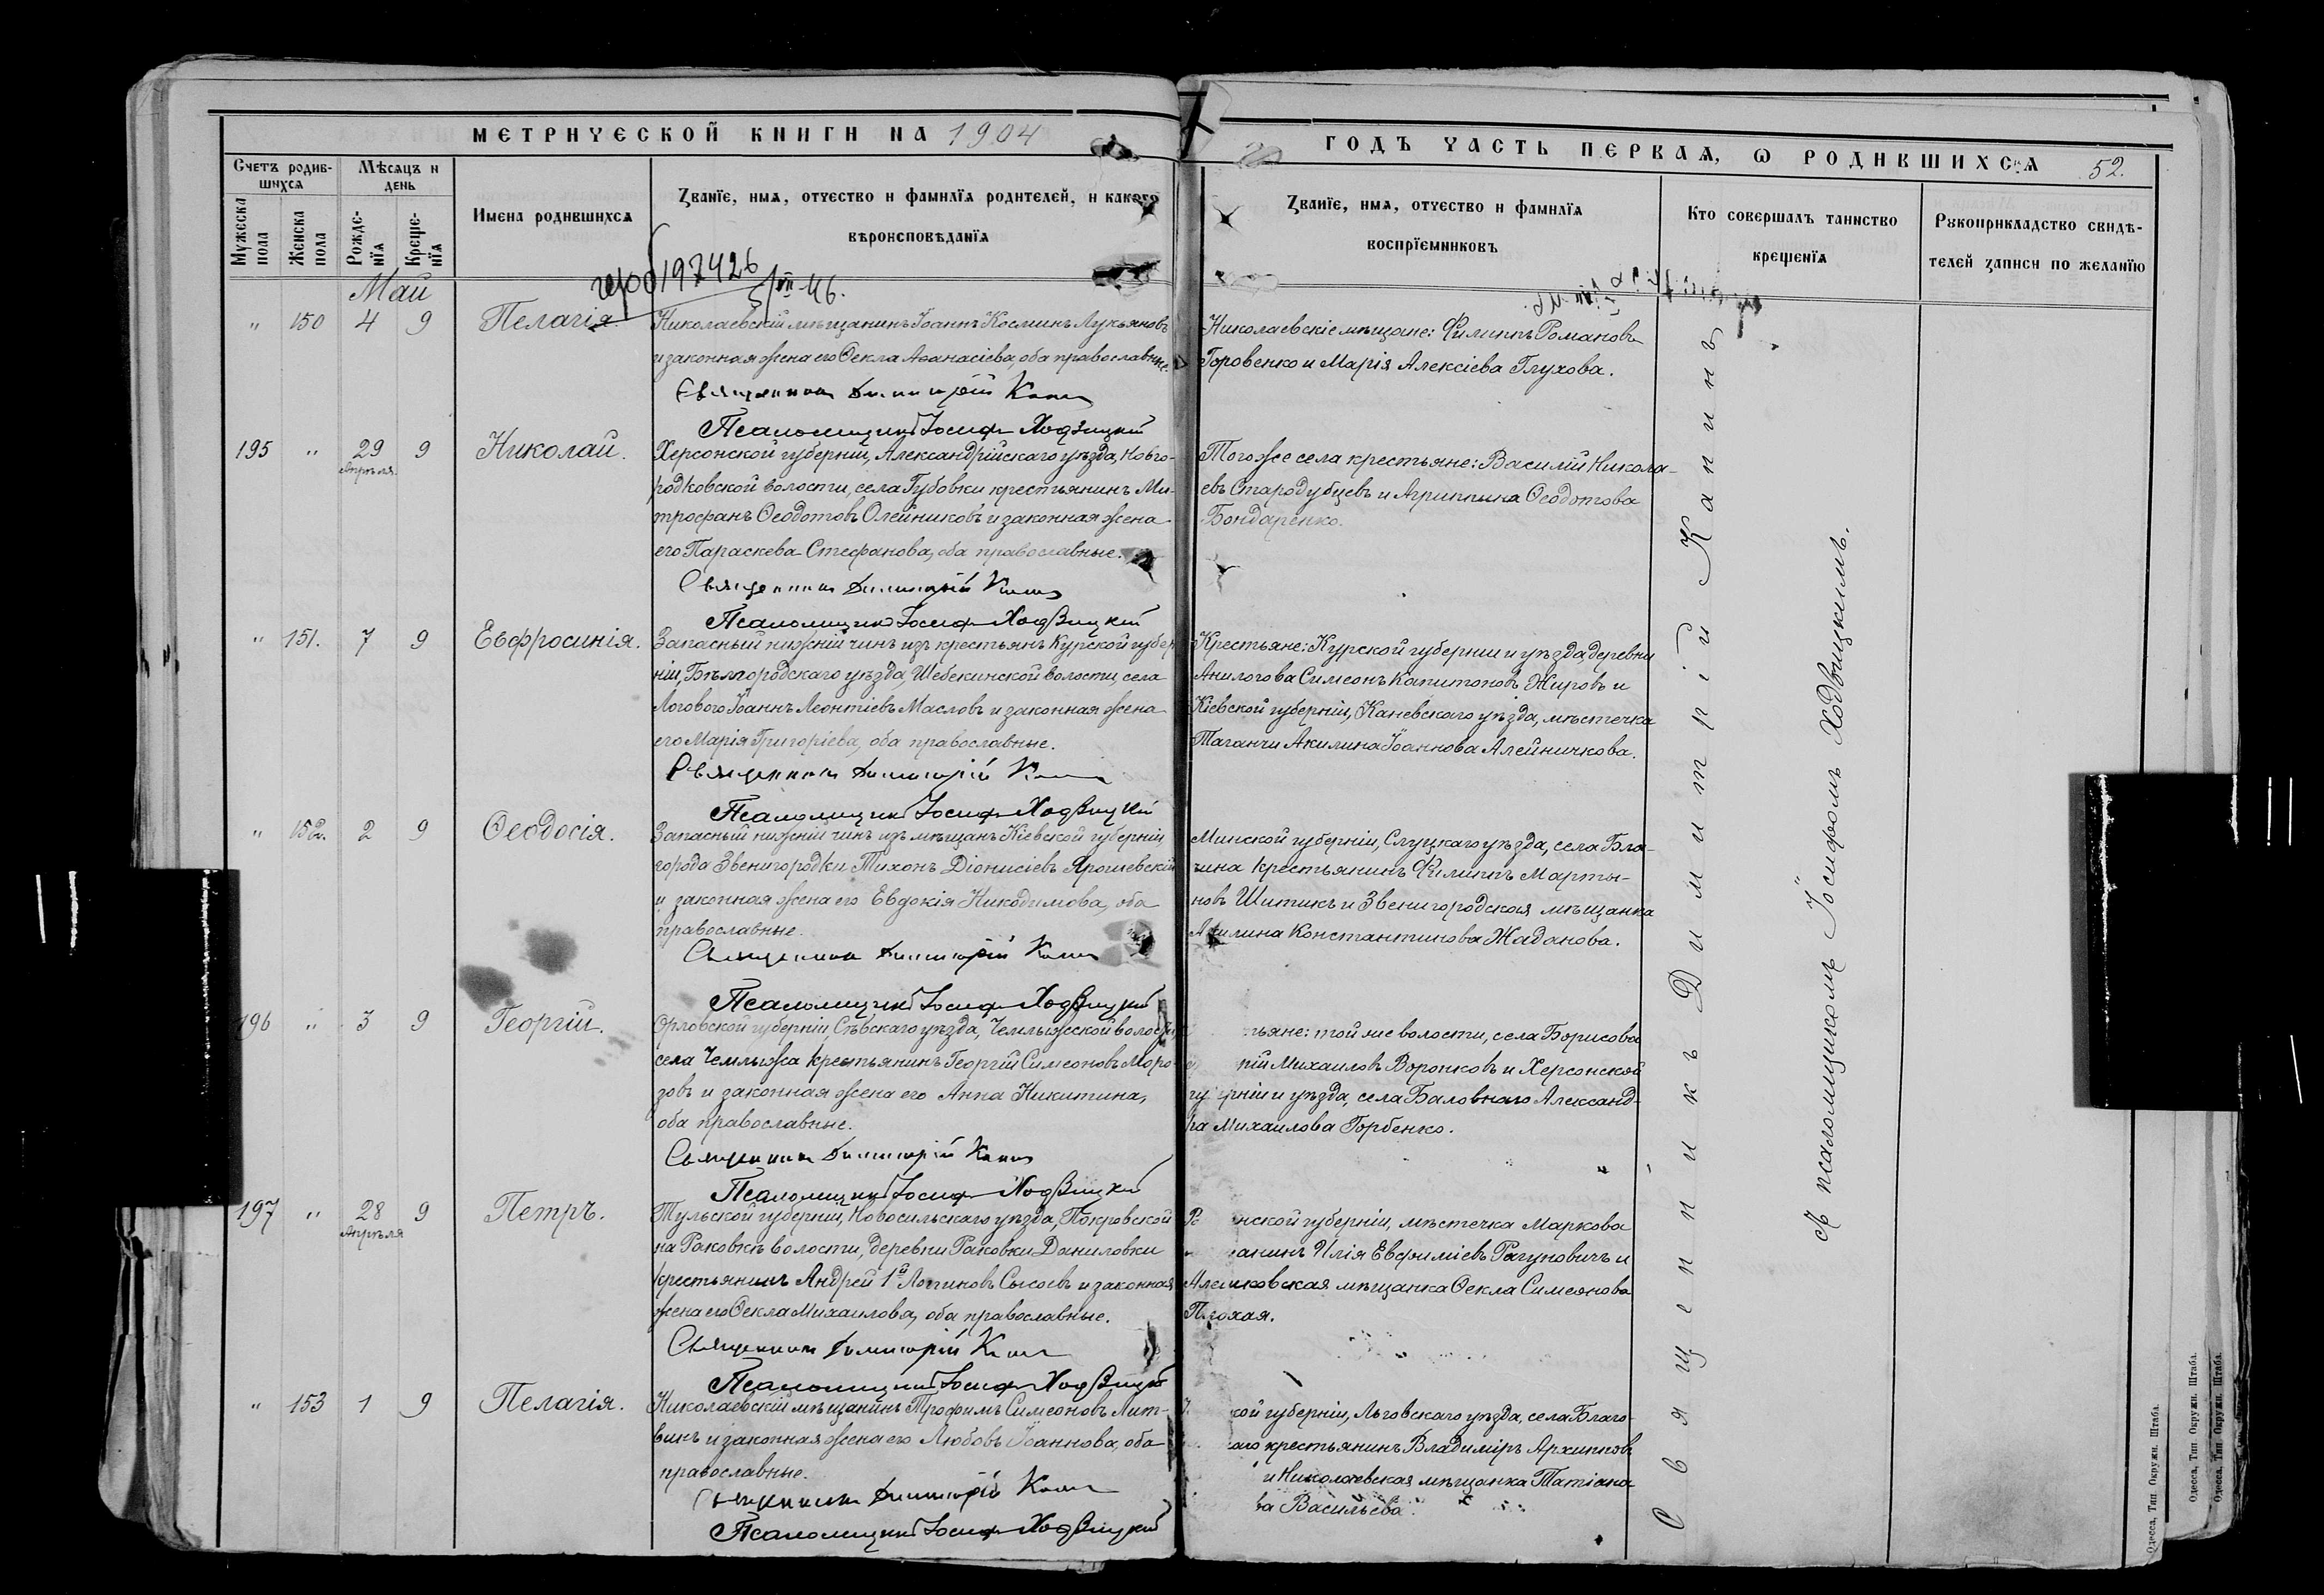 МЕТРИЧЕСКОЙ КНИГИ НА 1904
ГОДЪ ЧАСТЬ ПЕРВАЯ, Ѡ РОДИВШИХСЯ 52.
Счетъ родив-
шихся
Мѣсяцъ и
день
Мужеска
пола
Женска
пола
Рожде-
нія
Креще-
нія
Имена родившихся
Званіе, имя, отчество и фамилія родителей, и какого
вѣроисповѣданія
Званіе, имя, отчество и фамилія
воспріемниковъ
Кто совершалъ таинство
крещенія
Рукоприкладство свидѣ-
телей записи по желанію
197426
Май
" 150 4 9 Пелагія.
Николаевскій мѣщанинъ Іоаннъ Косминъ Лукьяновъ
и законная жена его Ѳекла Аѳанасіева, оба православные.
Священникъ Димитрій
Псаломщикъ Іосифъ Ходзицкій
Николаевскіе мѣщане: Филиппъ Романовъ
Горовенко и Марія Алексіева Глухова.
195 " 29 Апрѣля 9 Николай.
Херсонской губерніи, Александрійскаго уѣзда, Новго-
родковской волости, села Губовки крестьянинъ Ми-
трофанъ Ѳеодотовъ Олейниковъ и законная жена
его Параскева Стефанова, оба православные.
Священникъ Димитрій
Псаломщикъ Іосифъ Ходзицкій
Того же села крестьяне: Василій Никола-
евъ Стародубцевъ и Агриппина Ѳеодотова
Бондаренко.
" 151. 7 9 Евфросинія.
Запасный нижній чинъ изъ крестьянъ Курской губер
ніи, Бѣлгородскаго уѣзда, Шебекинской волости, села
Логового Іоаннъ Леонтіевъ Масловъ и законная жена
его Марія Григоріева, оба православные.
Священникъ Димитрій
Псаломщикъ Іосифъ Ходзицкій
Крестьяне: Курской губерніи и уѣзда деревни
Анилогова Симеонъ Капитоновъ Жировъ и
Кіевской губерніи, Каневскаго уѣзда, мѣстечка
Таганчи Акилина Іоаннова Алейничкова.
" 152. 2 9 Ѳеодосія.
Запасный нижній чинъ изъ мѣщанъ Кіевской губерніи
города Звенигородки Тихонъ Діонисіевъ Ярошевскій
и законная жена его Евдокія Никодимова, оба
православные.
Священникъ Димитрій
Псаломщикъ Іосифъ Ходзицкій
Минской губерніи, Слуцкаго уѣзда, села Бла-
чина крестьянинъ Филиппъ Марты-
новъ Шитикъ и Звенигородская мѣщанка
Акилина Константинова Жаданова.
196 " 3 9 Георгій.
Орловской губерніи, Сѣвскаго уѣзда, Чемлыжской волости,
села Чемлыжа крестьянинъ Георгій Симеоновъ Моро-
зовъ и законная жена его Анна Никитина,
оба православные.
Священникъ Димитрій
Псаломщикъ Іосифъ Ходзицкій
тьяне: той же волости, села Борисова
рій Михаиловъ Воронковъ и Херсонской
губерніи и уѣзда, села Баловнаго Александ-
ра Михаилова Горбенко.
197 " 28 Апрѣля 9 Петръ.
Тульской губерніи, Новосильскаго уѣзда, Покровской
на Раковкѣ волости, деревни Раковки Даниловки
крестьянинъ Андрей 1й Логиновъ Сысоевъ и законная
жена его Ѳекла Михаилова, оба православные.
Священникъ Димитрій
Псаломщикъ Іосифъ Ходзицкій
нской губерніи, мѣстечка Маркова
анинъ Илія Евфиміевъ Рагуновичъ и
Алешковская мѣщанка Ѳекла Симеонова
Плохая.
" 153 1 9 Пелагія.
Николаевскій мѣщанинъ Трофимъ Симеоновъ Лит-
винъ и законная жена его Любовь Іоаннова, оба
православные.
Священникъ Димитрій
Псаломщикъ Іосифъ Ходзицкій
кой губерніи, Льговскаго уѣзда, села Благо-
аго крестьянинъ Владиміръ Архиповъ
и Николаевская мѣщанка Татіана
ва Васильева.
Священникъ Димитрій Капинъ
съ псаломщикомъ Іосифомъ Ходзицкимъ.
Одесса, Тип. Окружн. Штаба.
Одесса, Тип. Окружн. Штаба.
Одесса, Тип. Окружн. Штаба.